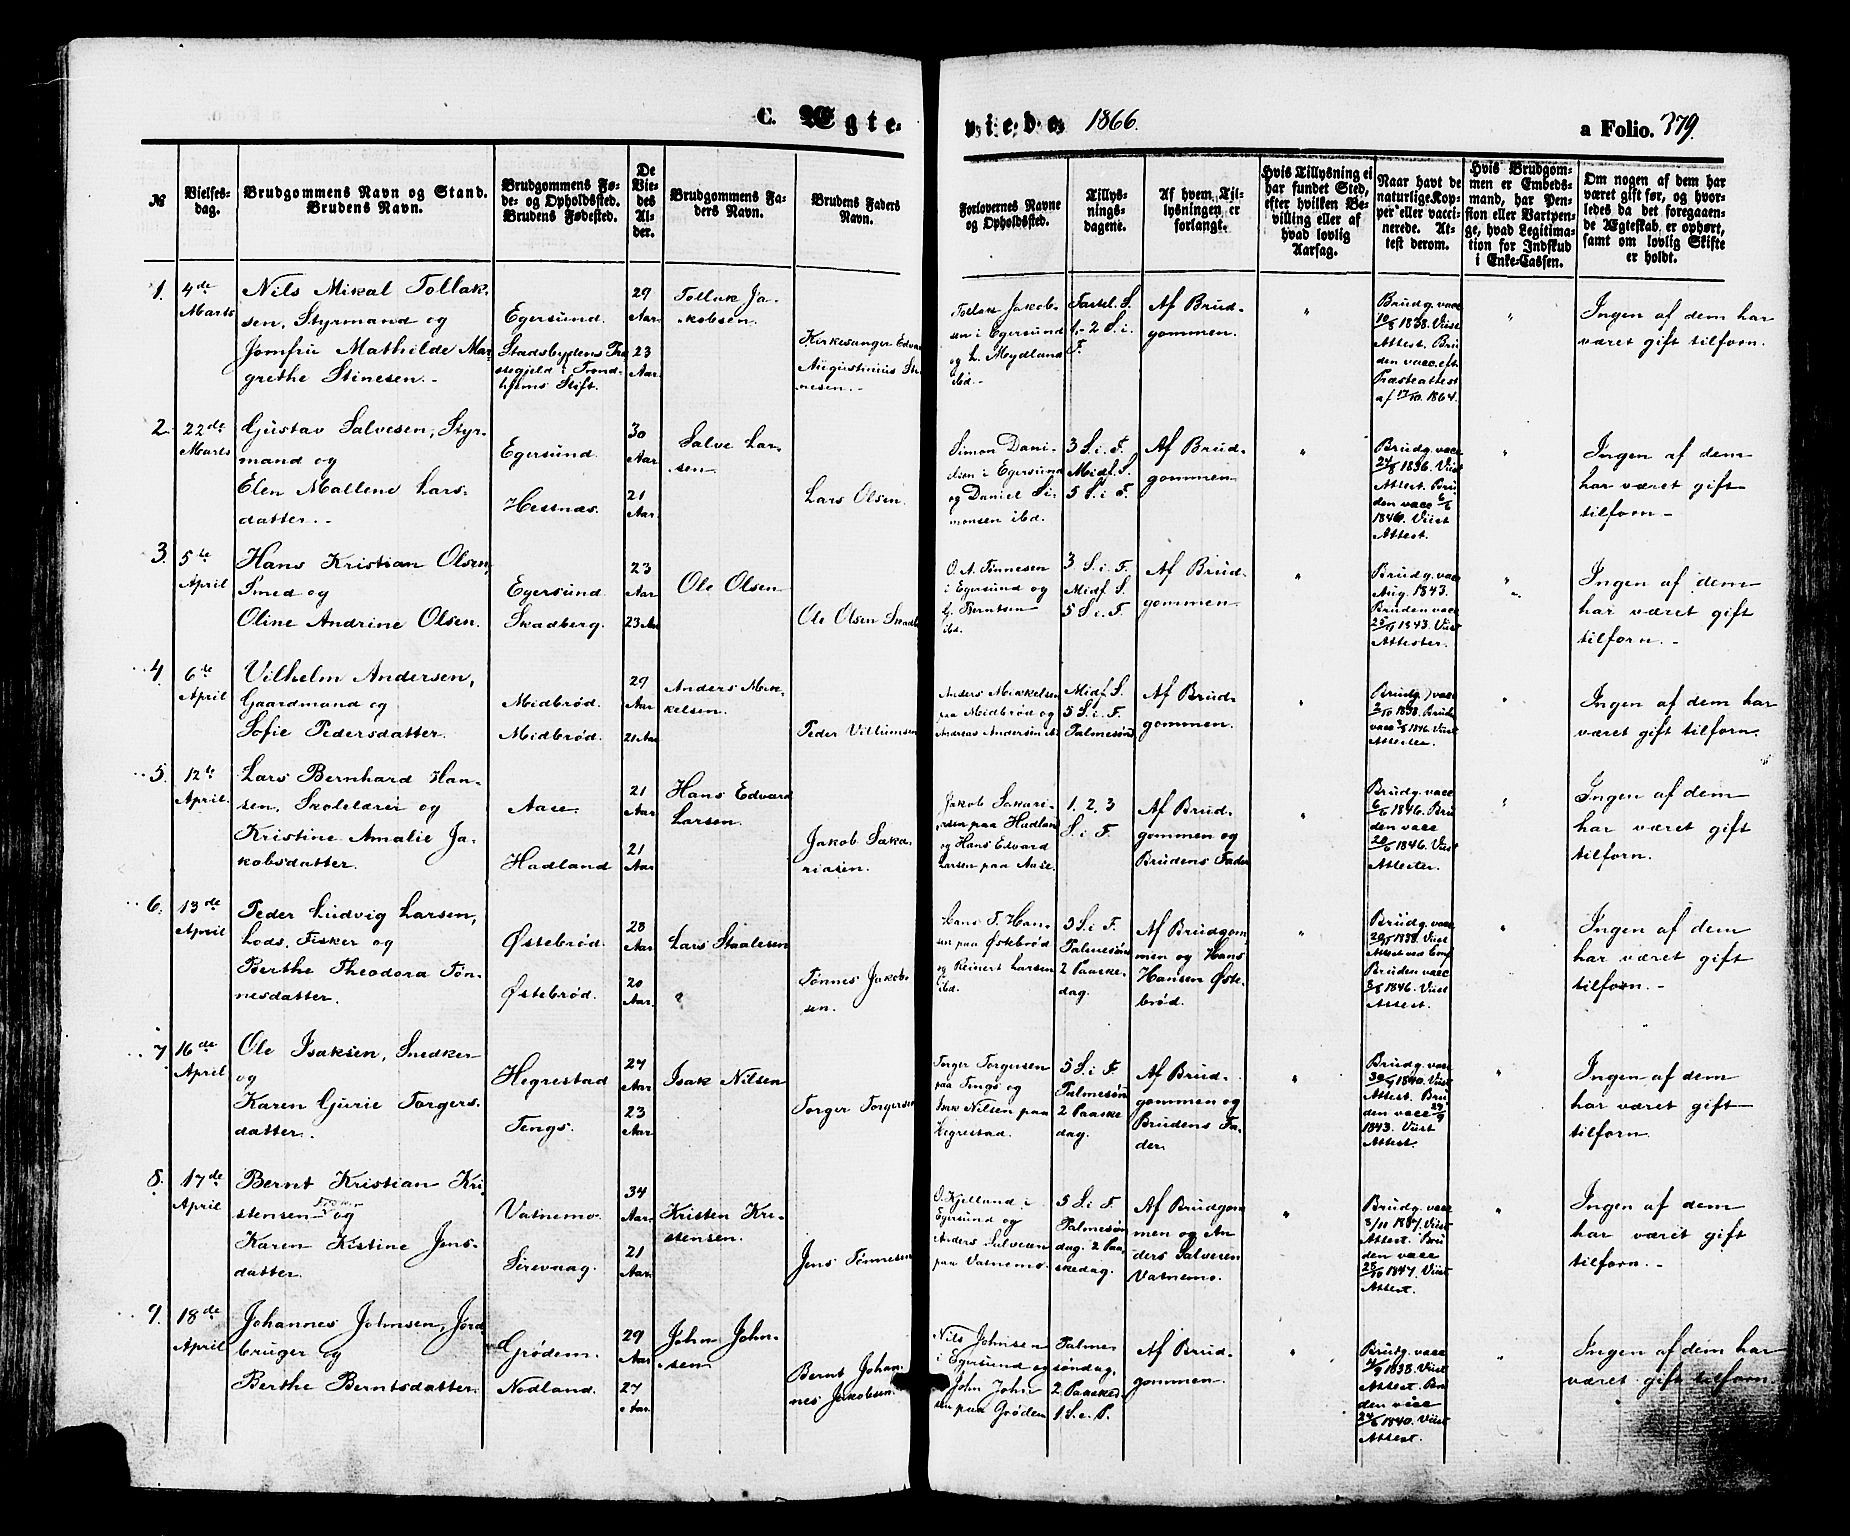 C. Ægte-
viede 1866.
a Folio. 379.
№
Vielses-
dag.
Brudgommens Navn og Stand.
Brudens Navn.
Brudgommens Fø-
de- og Opholdssted.
Brudens Fødested.
De
Vie-
des
Al-
der.
Brudgommens Fa-
ders Navn.
Brudens Faders
Navn.
Forlovernes Navne
og Opholdssted.
Tillys-
nings-
dagene.
Af hvem Til-
lysningen er
forlangt.
Hvis Tillysning ei
har fundet Sted,
efter hvilken Be-
villing eller af
hvad lovlig
Aarsag.
Naar havt de
naturlige Kop-
per eller vacci-
nerede. At-
test derom.
Hvis Brudgom-
men er Embeds-
mand, har Pen-
sion eller Vartpen-
ge, hvad Legitima-
tion for Indskud
i Enke-Cassen.
Om nogen af dem har
været gift før, og hvor-
ledes da det foregaaen-
de Ægteskab er ophørt,
samt om lovlig Skifte
er holdt.
1.
4de
Marts
Nils Mikal Tollak-
sen, Styrmand og
Jomfru Mathilde Mar-
grethe Stinesen.
Egersund.
Stadsbygdens Præ-
stegjeld i Trond-
hjems Stift.
29
Aar
23
Aar.
Tollak Ja-
kobsen.
Kirkesanger Edvard
Augustinius Sti-
nesen.
Tollak Jakob-
sen i Egersund
og L. Mydland
ibd.
Fastel. S.
1-2 S. i
F.
Af Brud-
gommen.
"
Brudg. vacc
10/8 1838. Viist
Attest. Bru
den vacc. eft.
Præsteattest
af 17/10. 1864.
"
Ingen af dem har
været gift tilforn.
2.
22de
Marts
Gustav Salvesen, Styr-
mand og
Elen Mallene Lars-
datter.
Egersund.
Hestnæs.
30
Aar
21
Aar.
Salve Lar-
sen.
Lars Olsen.
Simon Dani-
elsen i Egersund
og Daniel Si-
monsen ibd.
3 S. i. F.
Midf. S.
5 S. i F.
Af Brud-
gommen.
"
Brudg. vacc
24/8 1836. Viist
Attest. Bru
den vacc 6/6
1846. Viist
Attest.
"
Ingen af dem
har været gift
tilforn
3.
5te
April
Hans Kristian Olsen,
Smed og
Oline Andrine Olsen.
Egersund
Skadberg.
23
Aar
23 Aar
Ole Olsen
Ole Olsen Skadb.
O. A. Tønnesen
i Egersund og
G. Berntsen
ibd.
3 S. i. F.
Midf. S.
5 S. i F.
Af Brud-
gommen.
"
Brudg. vacc
Aug. 1843.
Bruden vacc
25/9 1843. Viist
Attester.
"
Ingen af dem
har været gift
tilforn.
4.
6te
April
Vilhelm Andersen,
Gaardmand og
Sofie Pedersdatter.
Midbrød.
Midbrød.
29
Aar
21 Aar
Anders Mik-
kelsen.
Peder Villumsen
Anders Mikkelsen
paa Midbrød og
Andreas Andersen ib.
Midf. S.
5 S. i F.
Palmesønd
Af Brud-
gommen.
"
Brudg. vacc
2/10 1838. Bruden
vacc 3/6 1846. Viist
Attester.
"
Ingen af dem har
været gift tilforn.
5.
12te
April.
Lars Bernhard Han-
sen, Skolelærer og
Kristine Amalie Ja-
kobsdatter.
Aase
Hadland
21
Aar
21
Aar
Hans Edvard
Larsen.
Jakob Saka-
riasen.
Jakob Sakari-
asen paa Hadland
og Hans Edvard
Larsen paa Aase.
1. 2. 3
S. i F.
Af Brud-
gommen og
Brudens Fader
"
Brudg. vacc
6/6 1846. Bru
den vacc
20/6 1846. Viist
Attester.
"
Ingen af dem
har været gift
tilforn.
6.
13de
April
Peder Ludvig Larsen,
Lods, Fisker og
Berthe Theodora Tøn-
nesdatter.
Østebrød.
Østebrød.
28
Aar
20
Aar.
Lars Staalesen
"
Tønnes Jakob-
sen.
Hans T. Han-
sen paa Østebrød
og Reinert Larsen
ibd.
5 S. i F.
Palmesønd
2 Paaske-
dag.
Af Brudgom
men og Hans
Hansen Øste-
brød.
"
Brudg. vacc
20/8 1838. Viist
Attest ved Conf
Bruden vacc
3/6 1846. Viist
Attest.
"
Ingen af dem
har været gift
tilforn.
7.
16de
April
Ole Isaksen, Snedker
og
Karen Gurie Torgers-
datter.
Hegrestad
Tengs.
24
Aar
23
Aar.
Isak Nilsen
Torger Torgersen
Torger Torgersen
paa Tengs og
Isak Nilsen paa
Hegrestad.
5 S. i F
Palmesønd
2 Paaske
dag.
Af Brud-
gommen og
Brudens Fa-
der.
"
Brudg. vacc
30/9 1840. Viist
Attest. Bru
den vacc 24/9
1843. Viist
Attest.
"
Ingen af dem
har været gift
tilforn.
8.
17de
April
Bernt Kristian Kri-
stensen og
Karen Kistine Jens-
datter.
Vatnemo.
Sirevaag.
34
Aar.
21
Aar.
Kristen Kri-
stensen.
Jens Tønnesen
O. Kjelland i
Egersund og
Anders Salvesen
paa Vatnemo.
5 S. i F.
Palmesøn
dag. 2 Paa-
skedag.
Af Brudgom
men og An
ders Salvesen
Vatnemo.
"
Brudg. vacc
3/11 1837. Viist
Attest. Bru
den vacc
25/10 1847. Viist
Attest.
"
Ingen af dem
har været gift
tilforn.
9.
18de
April
Johannes Johnsen, Jord
bruger og
Berthe Berntsdatter.
Grødem.
Nodland.
29
Aar
27
Aar.
John John-
sen
Bernt Johan-
nes Jakobsen.
Nils Johnsen
i Egersund og
John John
sen paa Grødem
Palme-
søndag.
2 Paaske.
1 S. e. P.
Af Brud-
gommen.
"
Brudg. vacc
4/9 1838. Viist
Attest. Bru
den vacc
24/6 1840. Viist
Attest.
"
Ingen af dem har
været gift tilforn.